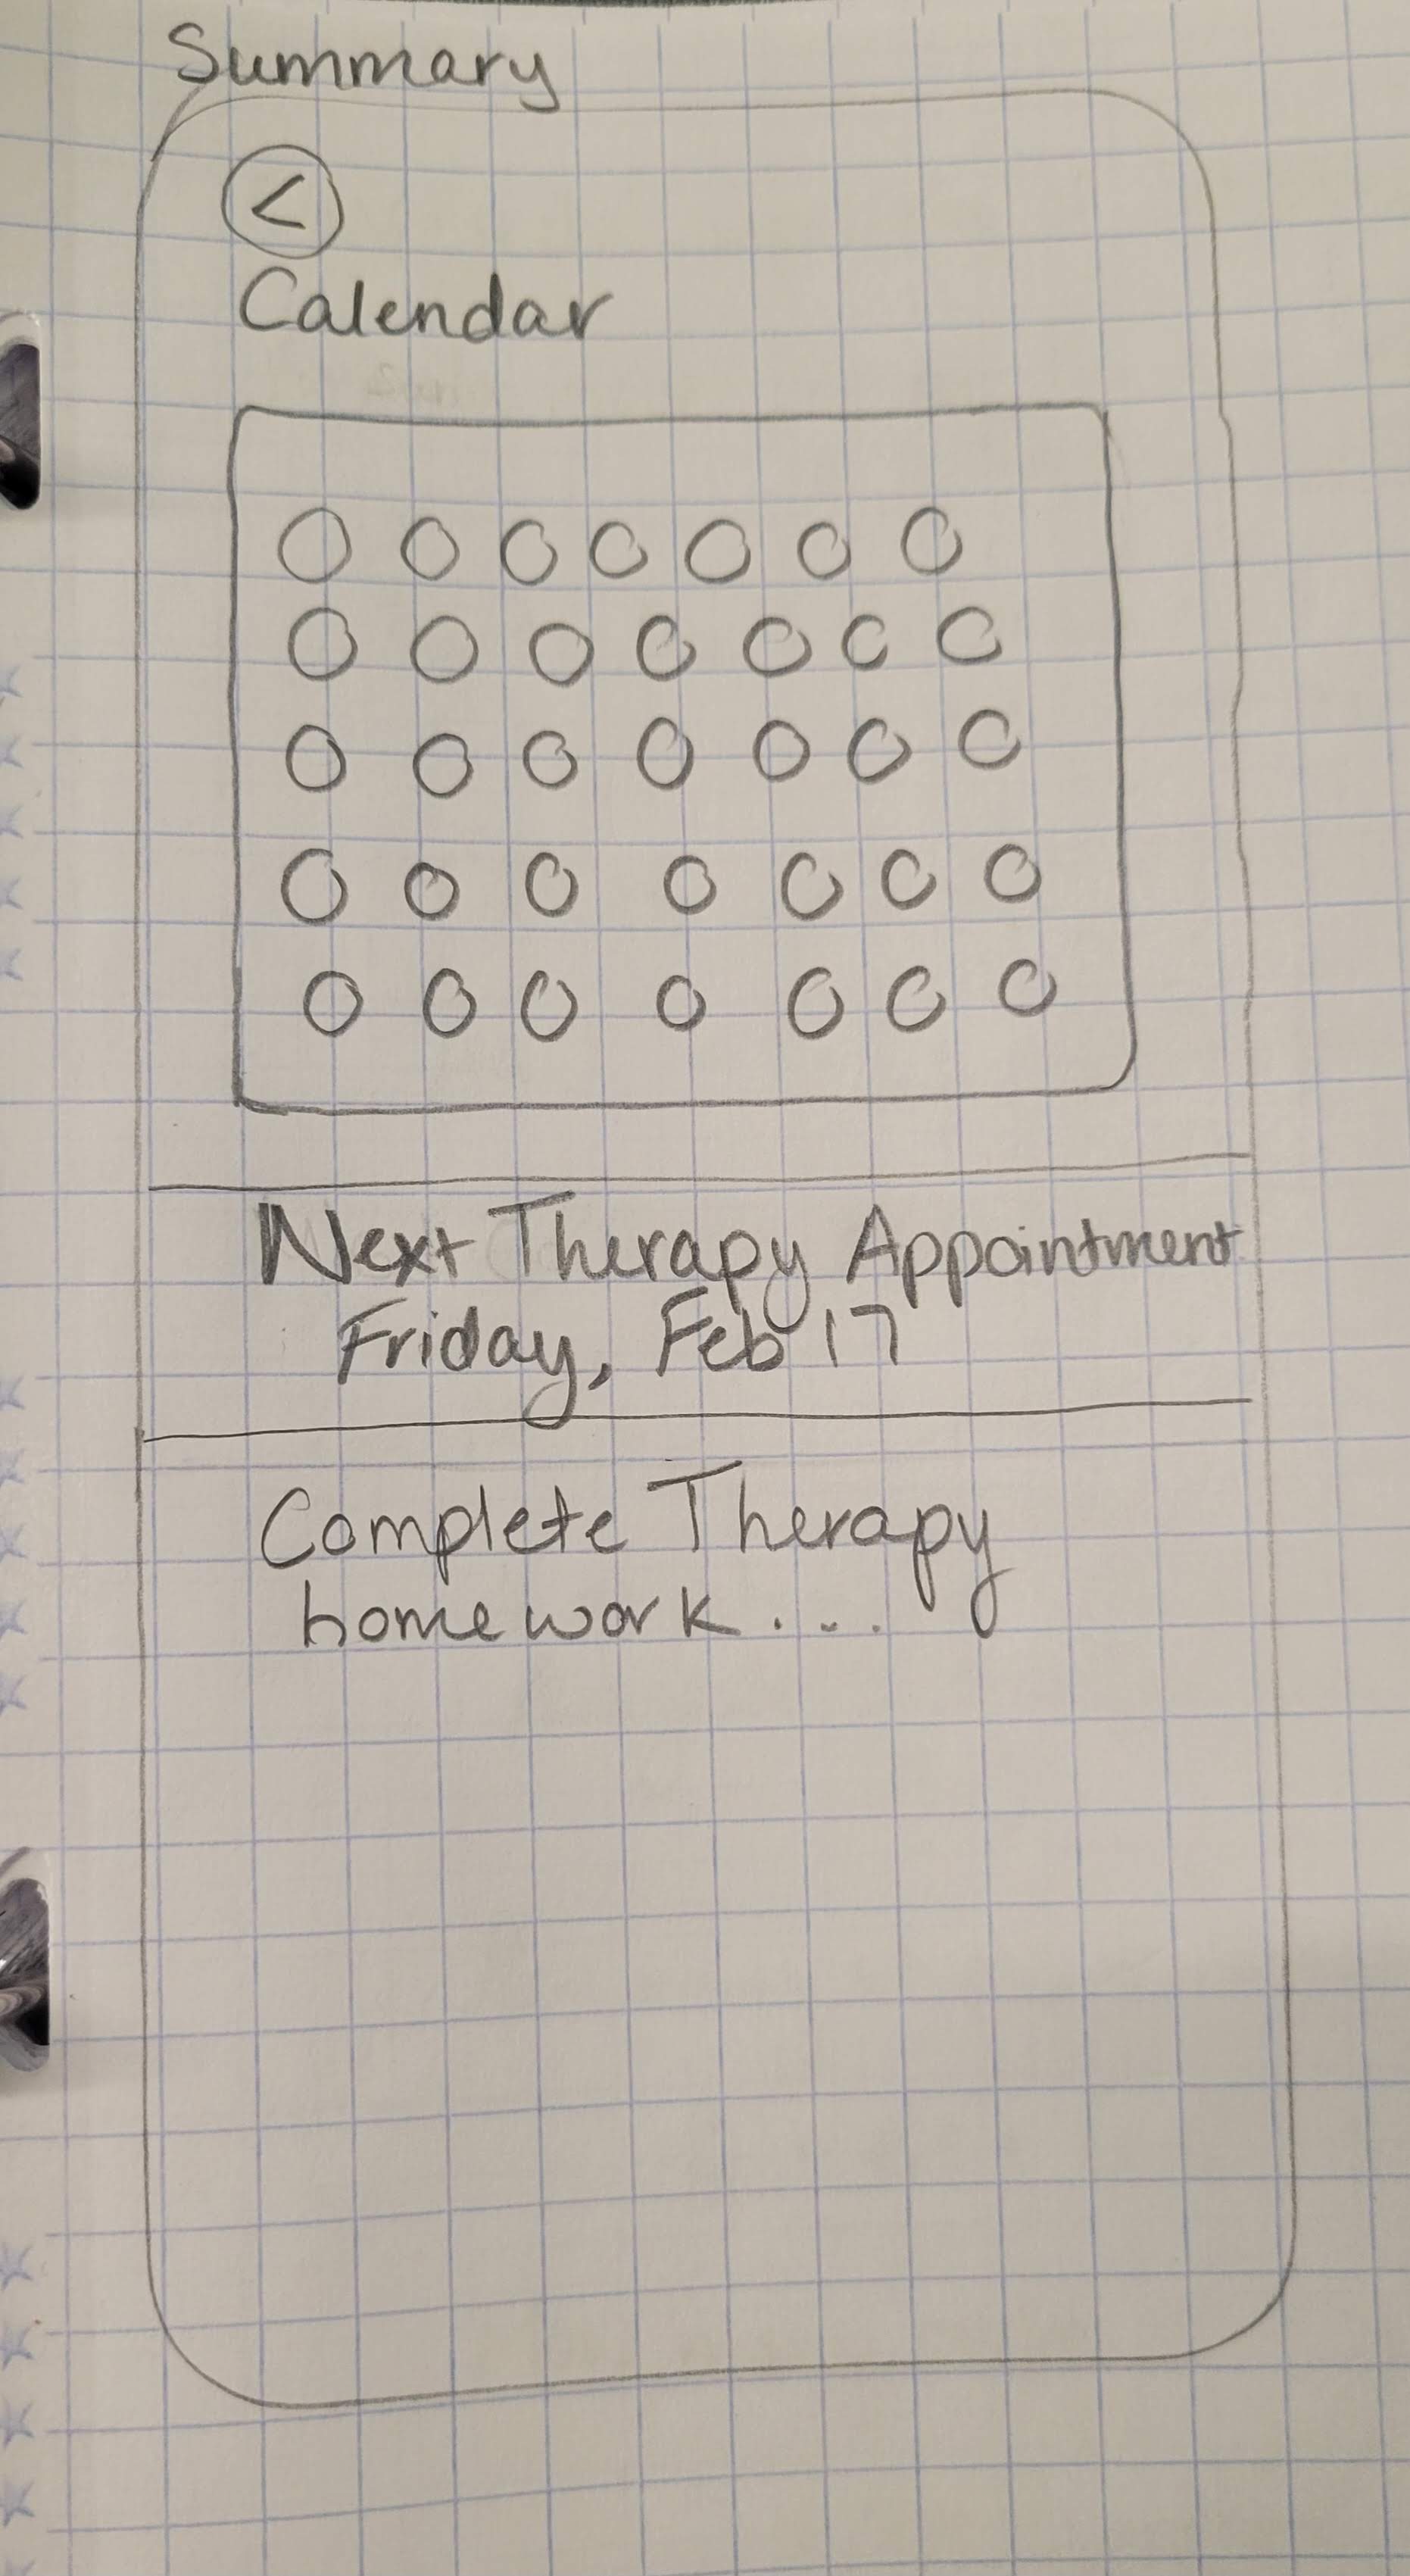 Summary
<
Calendar
Next Therapy Appointment
Friday, Feb 17
Complete Therapy
homework...